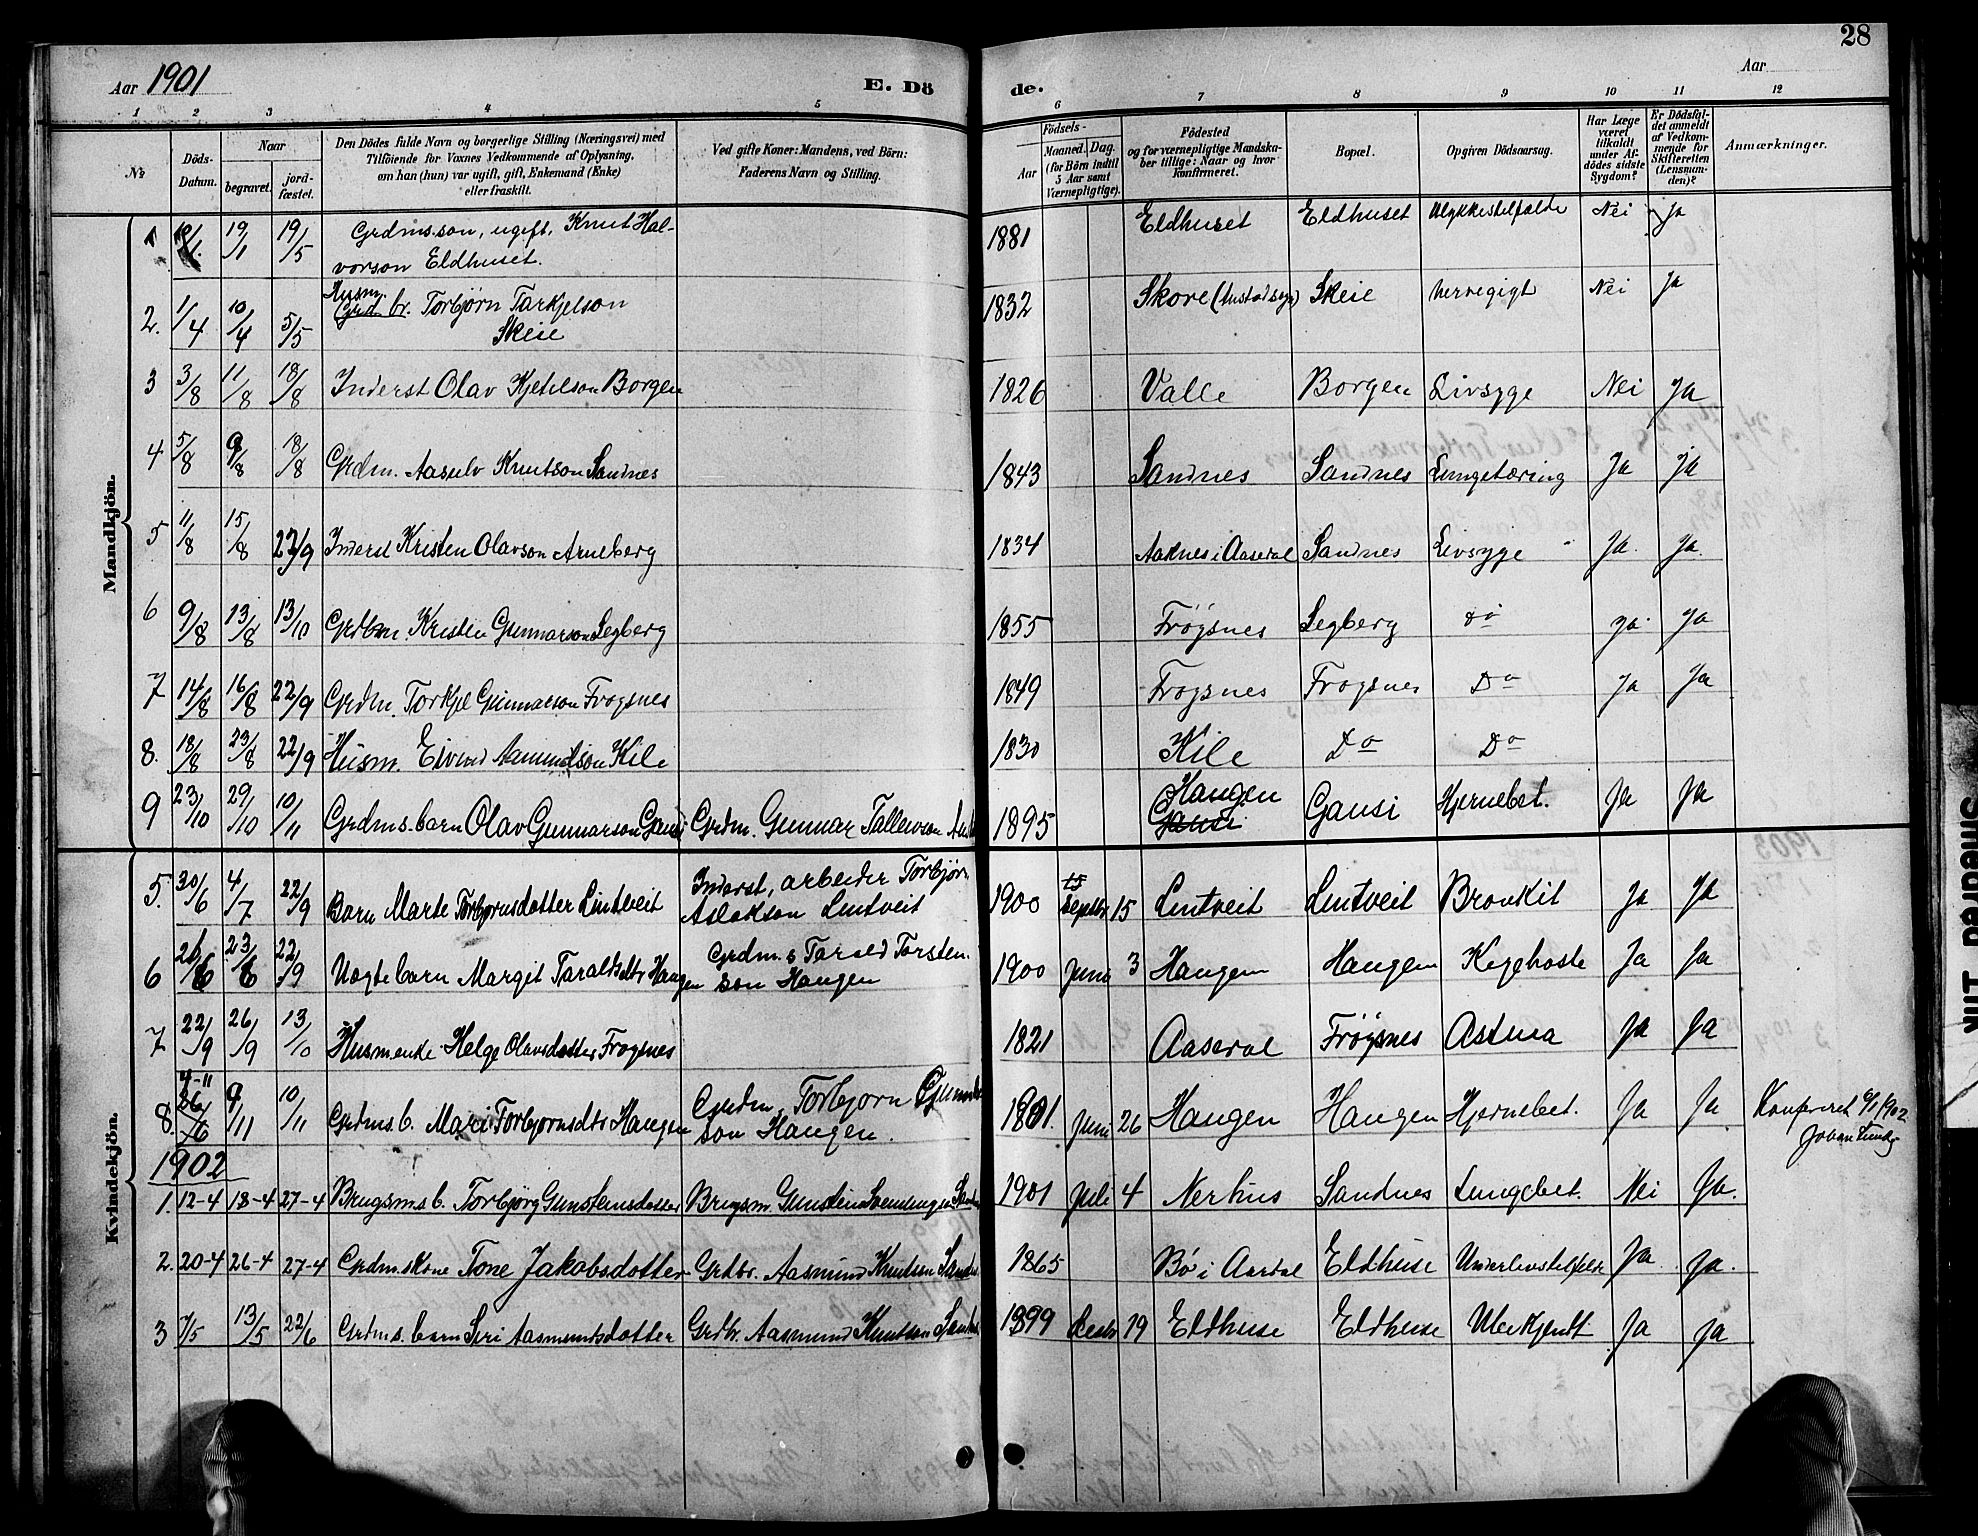 28
Aar 1901 E. Dö de. Aar
1 2 3 4 5 6 7 8 9 10 11 12
No
Döds-Datum.
Naar
begravet.
jord-fæstet.
Den Dödes fulde Navn og borgerlige Stilling (Næringsvei) med
Tilföiende for Voxnes Vedkommende af Oplysning,
om han (hun) var ugift, gift, Enkemand (Enke)
eller fraskilt.
Ved gifte Koner: Mandens, ved Börn:
Faderens Navn og Stilling.
Födsels-
Aar
Maaned. Dag.
(for Börn indtil
5 Aar samt
Værnepligtige).
Födested
og for værnepligtige Mandska-
ber tillige: Naar og hvor
konfirmeret.
Bopæl.
Opgiven Dödsaarsag.
Har Læge
været
tilkaldt
under Af-
dödes sidste
Sygdom?
Er Dödsfal-
det anmeldt
af Vedkom-
mende for
Skifteretten
(Lensman-
den)?
Anmærkninger.
Mandkjön.
1 19/1 19/5 Grdms.son, ugift, Knut Hal- 1881 Eldhuset Eldhuset Ulykkestilfælde Nei Ja
vorson Eldhuset.
Husm.
2. 1/4 10/4 5/5 Grd br. Torbjørn Tarkjelson 1832 Skore Skeie Nervegigt Nei Ja
Skeie
3 3/8 11/8 18/8 Inderst Olav Kjetelson Borgen 1826 Valle Borgen Livsyge Nei Ja
4 5/8 9/8 18/8 Grdm. Aasulv Knutson Sandnes 1843 Sandnes Sandnes Lungetæring Ja Ja
5 11/8 15/8 22/9 Inderst Kristen Olavson Arneberg 1834 Aaknes i Aaseral Sandnes Livsyge Ja. Ja.
6 9/8 13/8 13/10 Grdbm. Kristen Gunnarson Legberg 1855 Frøgsnes Legberg do Ja. Ja
7 14/8 16/8 22/9 Grdm. Torkjel Gunnarson Frøgsnes 1849 Frøgsnes Frogsnes Do Ja Ja
8. 18/8 23/8 22/9 Husm. Eivind Aamundson Kile 1830 Kile Do Do
Haugen
9 23/10 29/10 10/11 Grdms. barn Olav Gunnarson Gausi Grdm. Gunnar Tallewson 1895 Gausi Gausi Hjernebet. Ja Ja
Kvindekjön.
Inderst, arbeider Torbjør
5. 30/6 4/7 22/9 Barn Marte Torbjørnsdotter Lintveit Aslakson Lintveit 1900 Septbr 15 Lintveit Lintveit Bronkit Ja Ja
Grdm.s Tarald Torsten
6 20/6 23/6 22/9 Uægte barn Margit Taraldsdtr Haugen son Haugen 1900 Juni 3 Haugen Haugen Kighoste Ja Ja
7 22/9 26/9 13/10 Husmenke Helge Olavsdotter Frogsnes 1821 Aaseral Frøgsnes Astma Ja Ja
4-11
Grdm. Torbjorn Gunn
8. 26/6 9/11 10/11 Grdms. b. Mari Torbjornsdtr Haugen son Haugen. 1901. Juni 26 Haugen Haugen Hjernebet. Ja Ja Konfereret 6/1 1902
Johan
1902
1. 12-4 18-4 27-4 Brugsms b. Torbjørg Gunsteinsdotter Brugsm. Gunstein Svenungson 1901 Juli 4 Nerhus Sandnes Lungebet. Nei Ja.
2. 20-4 26-4 27-4 Grdm.skone Tone Jakobsdotter Grdbr. Aasmund Knutson 1865 Bø i Aardal Eldhuse Underlivstilfelde Ja. Ja.
3 7/5 13/5 22/6 Grdms. barn Siri Aasmundsdotter Grdbr. Aasmund Knutson 1899 Decbr 19 Eldhuse Eldhuse Ubekjendt Ja Ja